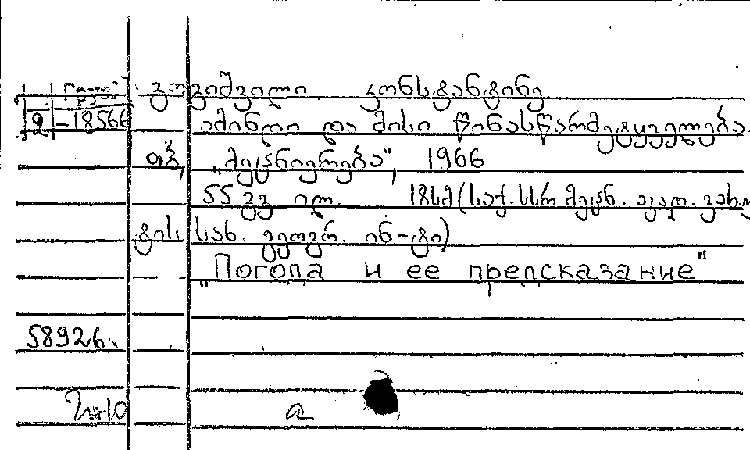 გუგიშვილი კონსტანტინე
2 -18566 ამინდი და მისი წინასწარმეტყველება.
თბ, „მეცნიერება", 1966
55 გვ. ილ. 18სმ (საქ. სსრ მეცნ. აკად. ვახუშ
ტის სახ. გეოგრ. ინ-ტი)
„Погода и ее предсказание"
58926.
а